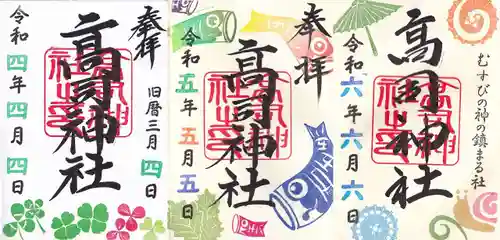 奉拝
高司神社
旧暦三月四日
令和四年四月四日
奉拝
高司神社
令和五年五月五日
高司神社
むすびの神の鎮まる社
令和六年六月六日